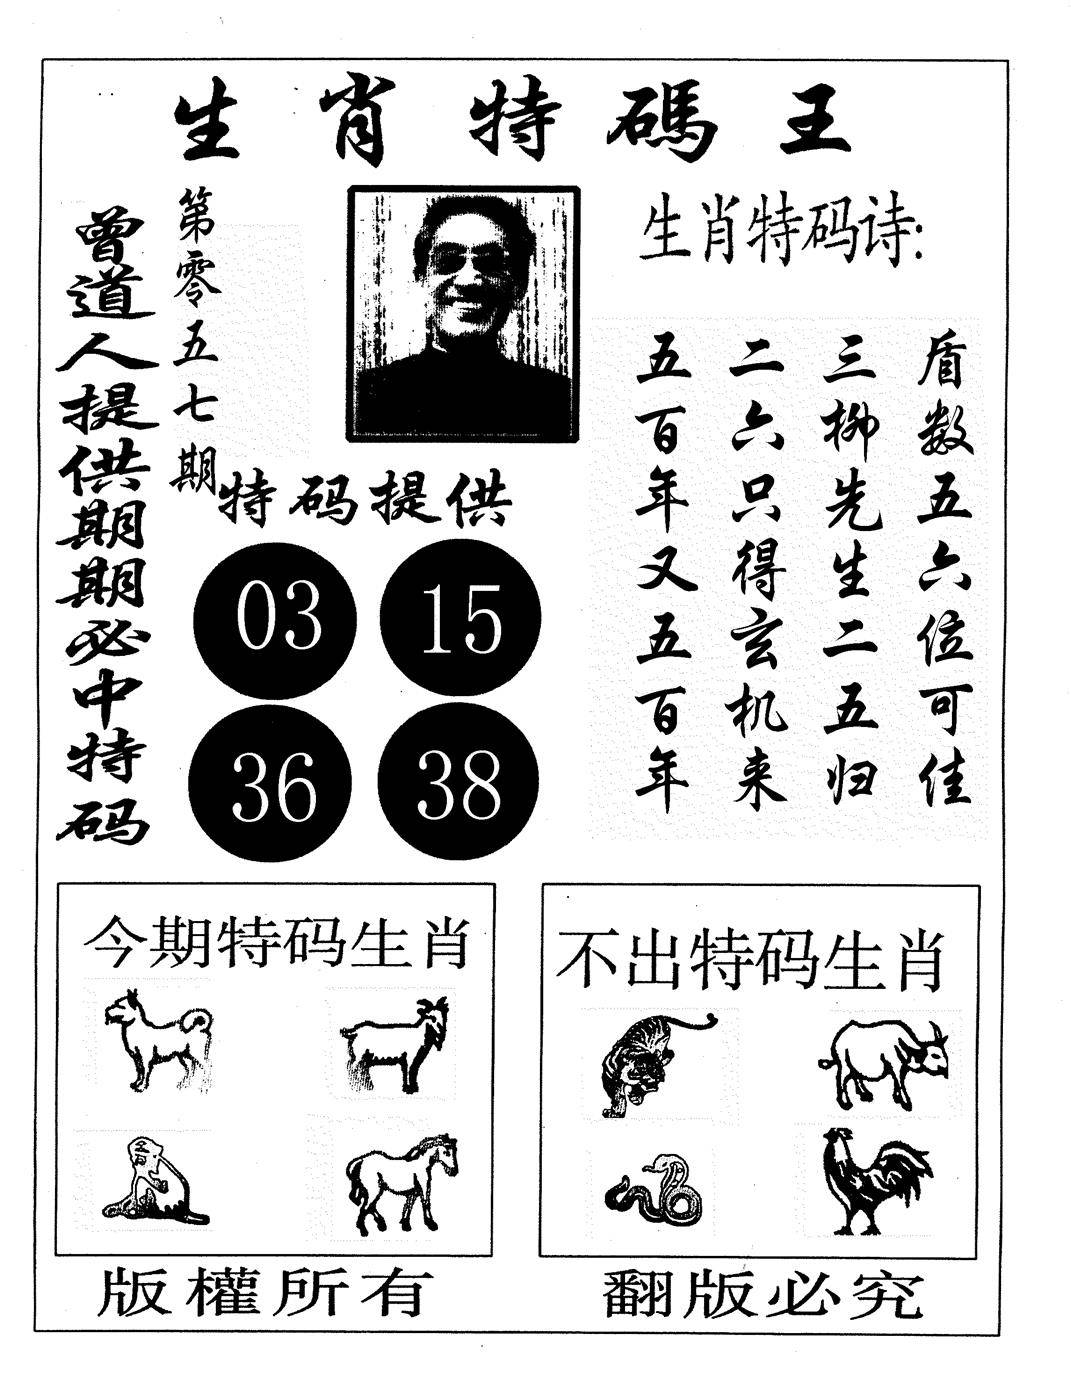 生肖特碼王
曾道人提供期期必中特码
第零五七期
生肖特码诗:
盾数五六位可佳
三柳先生二五归
二六只得玄机来
五百年又五百年
特码提供
03 15
36 38
今期特码生肖
不出特码生肖
版權所有
翻版必究